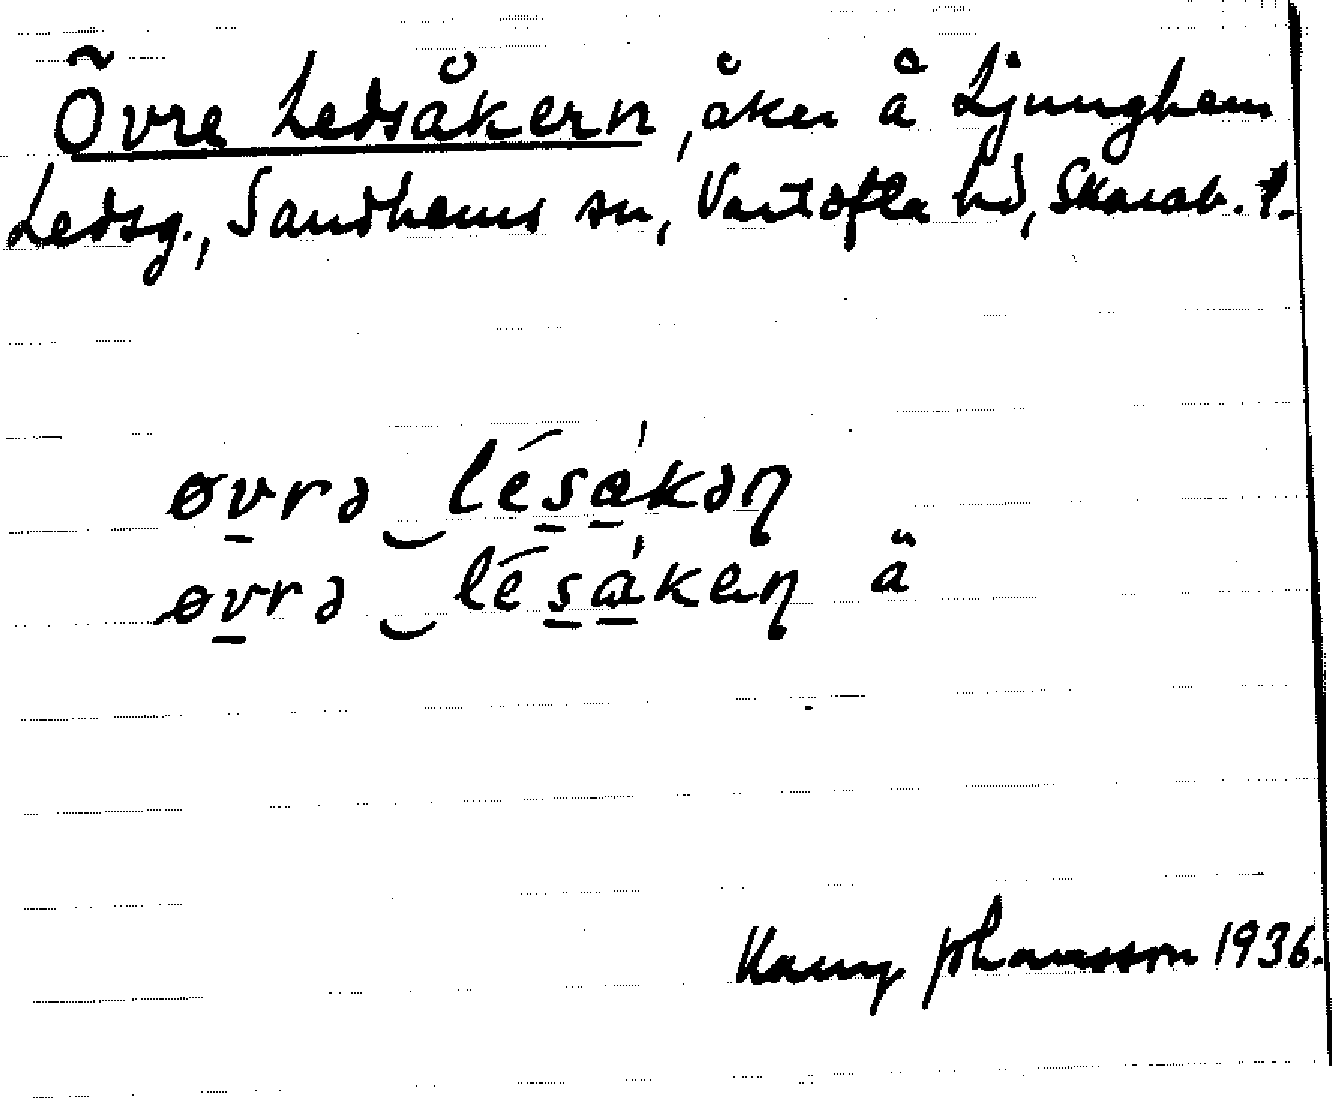 Övre Ledsåkern, åker å Ljunghem
Ledsg., Sandhems sn, Vartofta hd, Skarab. l.
øvrə lésákəɳ
øvrə lésákeɳ ä
Johansson 1936.